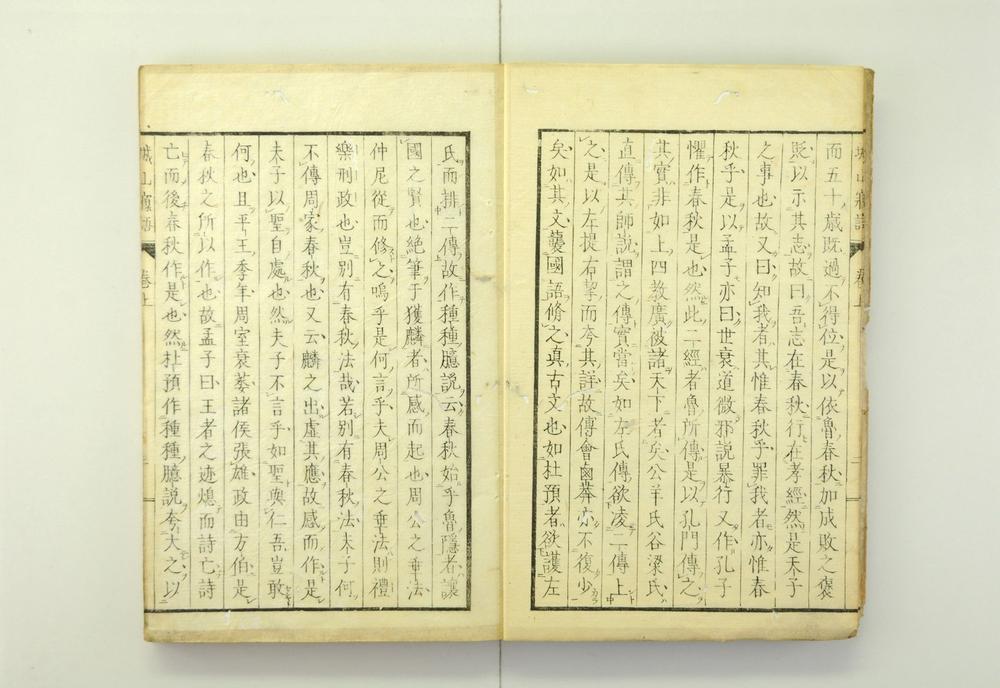 而五十歳既過不得位是以依魯春秋加成敗之褒
貶以示其志故曰吾志在春秋行在孝經然是天子
之事也故又曰知我者其惟春秋乎罪我者亦惟春
秋乎是以孟子亦曰世衰道微邪說暴行又作孔子
懼作春秋是也然此二經者魯所傳是以孔門傳之
其實非如上四教廣被諸天下者矣公羊氏谷梁氏
直傳其師說謂之傳實當矣如左氏傳欲凌二傳上
之是以左提右挈而夸其詳故傳會鹵莽亦不復少
矣如其文襲國語脩之真古文也如杜預者欲護左
氏而排二傳故作種種臆說云春秋始乎魯隱者讓
國之賢也絶筆于獲麟者所感而起也周公之垂法
仲尼從而修之嗚乎是何言乎夫周公之垂法則禮
樂刑政也豈別有春秋法哉若別有春秋法夫子何
不傳周家春秋也又云麟之出虛其應故感而作是
夫子以聖自處也然夫子不言乎如聖與仁吾豈敢
何也且平王季年周室衰萎諸侯張雄政由方伯是
春秋之所以作也故孟子曰王者之迹熄而詩亡詩
亡而後春秋作是也然杜預作種種臆說夸大之以
卷上